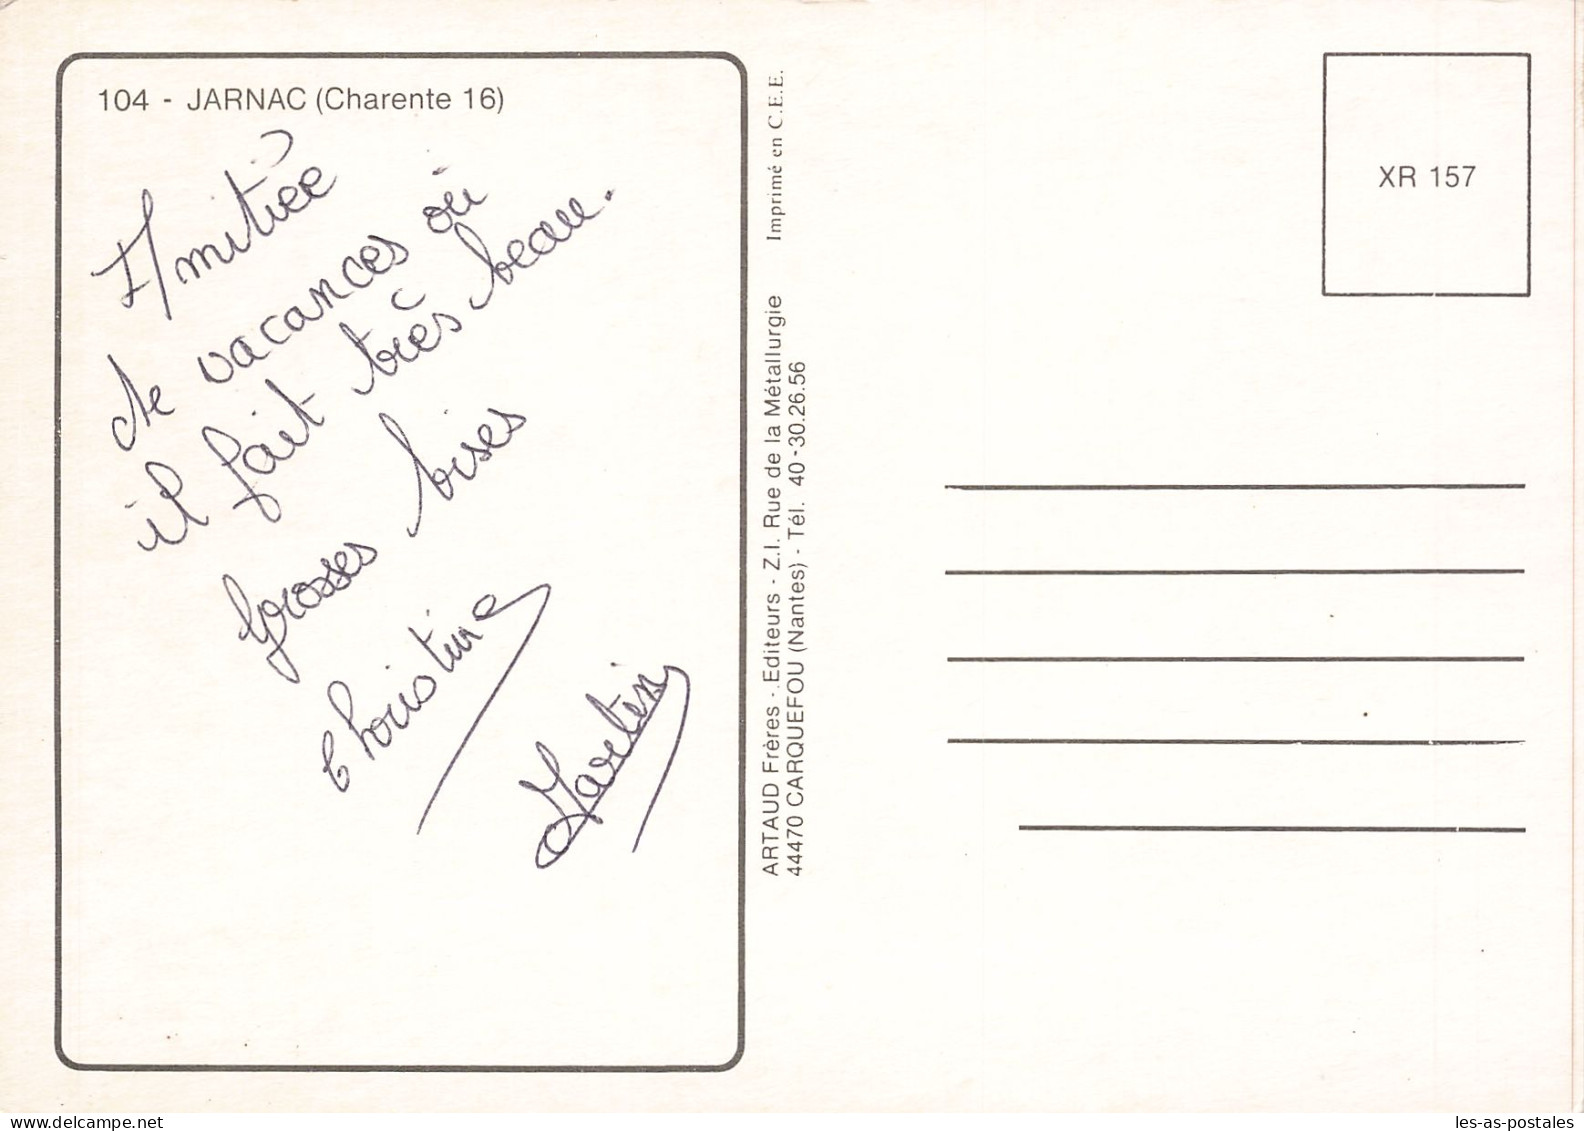 104 - JARNAC (Charente 16)
Amitiée
de vacances où
il fait très beau.
Grosses bises
Christine
Martin
Imprimé en C.E.E.
ARTAUD Frères - Editeurs - Z.I. Rue de la Métallurgie
44470 CARQUEFOU (Nantes) - Tél. 40-30.26.56
XR 157
www.delcampe.net
les-as-postales